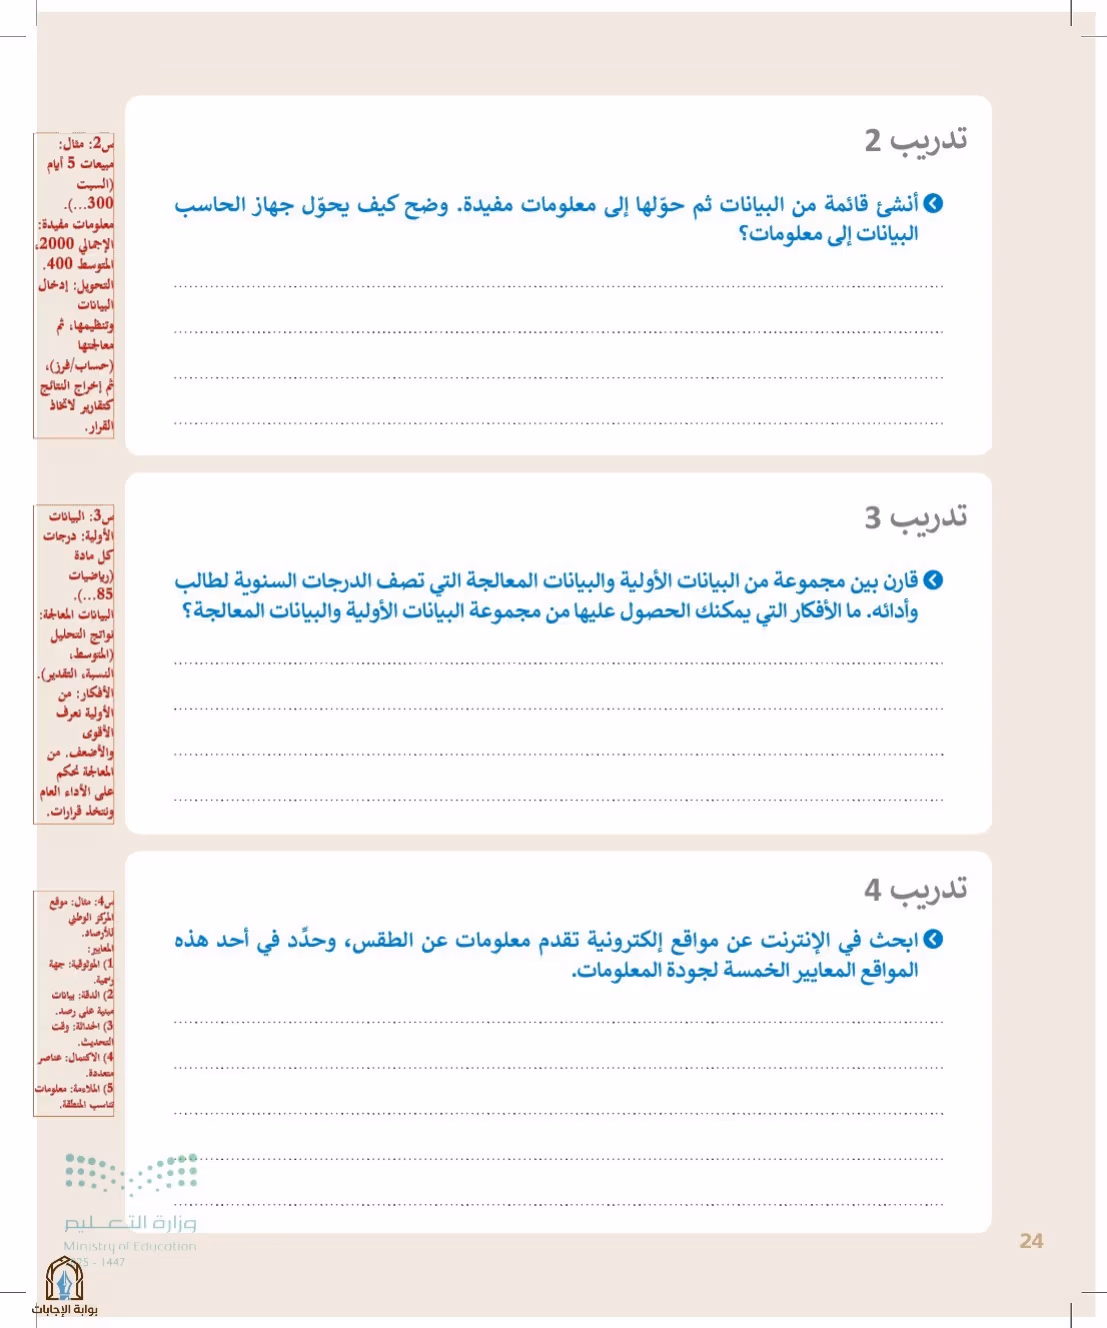 تدريب 2
أنشئ قائمة من البيانات ثم حوّلها إلى معلومات مفيدة. وضح كيف يحوّل جهاز الحاسب
البيانات إلى معلومات؟
س2: مثال:
مبيعات 5 أيام
(السبت
300...).
معلومات مفيدة:
الإجمالي 2000،
المتوسط 400.
التحويل: إدخال
البيانات
وتنظيمها، ثم
معالجتها
(حساب/فرز)،
ثم إخراج النتائج
كتقارير لاتخاذ
القرار.
تدريب 3
قارن بين مجموعة من البيانات الأولية والبيانات المعالجة التي تصف الدرجات السنوية لطالب
وأدائه. ما الأفكار التي يمكنك الحصول عليها من مجموعة البيانات الأولية والبيانات المعالجة؟
س3: البيانات
الأولية: درجات
كل مادة
(رياضيات
85...).
البيانات المعالجة:
نواتج التحليل
(المتوسط،
النسبة، التقدير).
الأفكار: من
الأولية نعرف
الأقوى
والأضعف. من
المعالجة نحكم
على الأداء العام
ونتخذ قرارات.
تدريب 4
ابحث في الإنترنت عن مواقع إلكترونية تقدم معلومات عن الطقس، وحدِّد في أحد هذه
المواقع المعايير الخمسة لجودة المعلومات.
س4: مثال: موقع
المركز الوطني
للأرصاد.
المعايير:
1) الموثوقية: جهة
رسمية.
2) الدقة: بيانات
مبنية على رصد.
3) الحداثة: وقت
التحديث.
4) الاكتمال: عناصر
متعددة.
5) الملاءمة: معلومات
تناسب المنطقة.
وزارة التعليم
Ministry of Education
25 - 1447
24
بوابة الإجابات